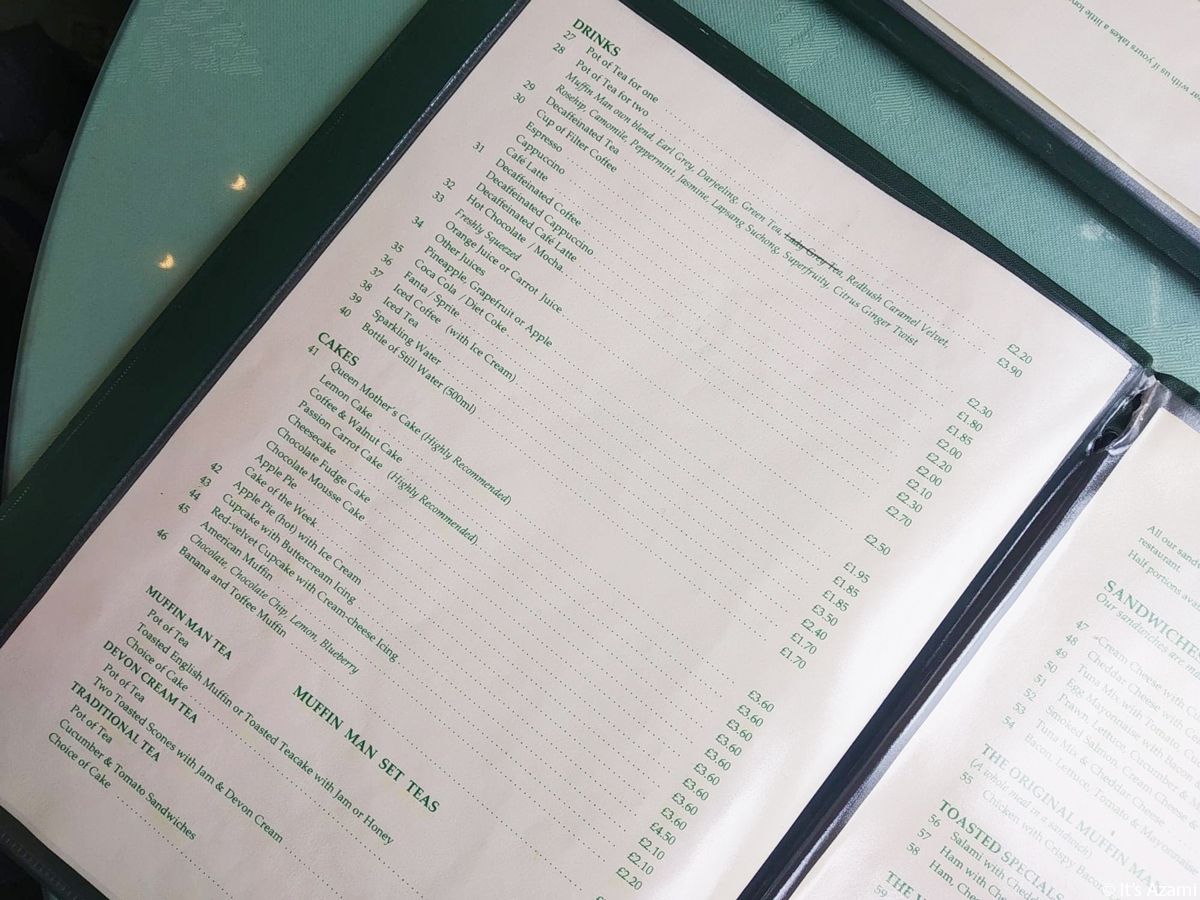 DRINKS
27 Pot of Tea for one £2.20
28 Pot of Tea for two £3.90
Muffin Man own blend, Earl Grey, Darjeeling, Green Tea, Lady Grey Tea, Redbush Caramel Velvet,
Rosehip, Camomile, Peppermint, Jasmine, Lapsang Suchong, Superfruity, Citrus Ginger Twist
29 Decaffeinated Tea £2.30
30 Cup of Filter Coffee £1.80
Espresso £1.85
Cappuccino £2.00
Café Latte £2.20
31 Decaffeinated Coffee £2.00
Decaffeinated Cappuccino £2.10
Decaffeinated Café Latte £2.30
32 Hot Chocolate / Mocha £2.70
33 Freshly Squeezed
Orange Juice or Carrot Juice £2.50
34 Other Juices
Pineapple, Grapefruit or Apple £1.95
35 Coca Cola / Diet Coke £1.85
36 Fanta / Sprite £1.85
37 Iced Coffee (with Ice Cream) £3.50
38 Iced Tea £2.40
39 Sparkling Water £1.70
40 Bottle of Still Water (500ml) £1.70
CAKES
41 Queen Mother's Cake (Highly Recommended) £3.60
Lemon Cake £3.60
Coffee & Walnut Cake £3.60
Passion Carrot Cake (Highly Recommended) £3.60
Cheesecake £3.60
Chocolate Fudge Cake £3.60
Chocolate Mousse Cake £3.60
Apple Pie £3.60
Cake of the Week
42 Apple Pie (hot) with Ice Cream £4.50
43 Cupcake with Buttercream Icing £2.10
44 Red-velvet Cupcake with Cream-cheese Icing £2.10
45 American Muffin £2.20
Chocolate, Chocolate Chip, Lemon, Blueberry
46 Banana and Toffee Muffin
MUFFIN MAN SET TEAS
MUFFIN MAN TEA
Pot of Tea
Toasted English Muffin or Toasted Teacake with Jam or Honey
Choice of Cake
DEVON CREAM TEA
Pot of Tea
Two Toasted Scones with Jam & Devon Cream
TRADITIONAL TEA
Pot of Tea
Cucumber & Tomato Sandwiches
Choice of Cake
us if yours takes a little
All our
restaurant.
Half portions
SANDWICHES
Our sandwiches are
47 Cream Cheese with
48 Cheddar Cheese with
49 Tuna Mix with Tomato,
50 Egg Mayonnaise with Bacon
51 Prawn, Lettuce, Cucumber &
52 Smoked Salmon, Cream Cheese
53 Tuna Mix & Cheddar Cheese
54 Bacon, Lettuce, Tomato & Mayonnaise
THE ORIGINAL MUFFIN
(A whole meal in a sandwich)
55 Chicken with Crispy
TOASTED SPECIALS
56 Salami with
57 Ham with
58 Ham,
THE
59
© It's Azami